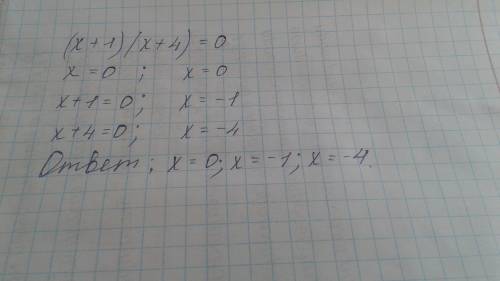 (x+1)(x+4)=0
x=0 ; x=0
x+1=0; x=-1
x+4=0; x=-4
Ответ: x=0; x=-1; x=-4.